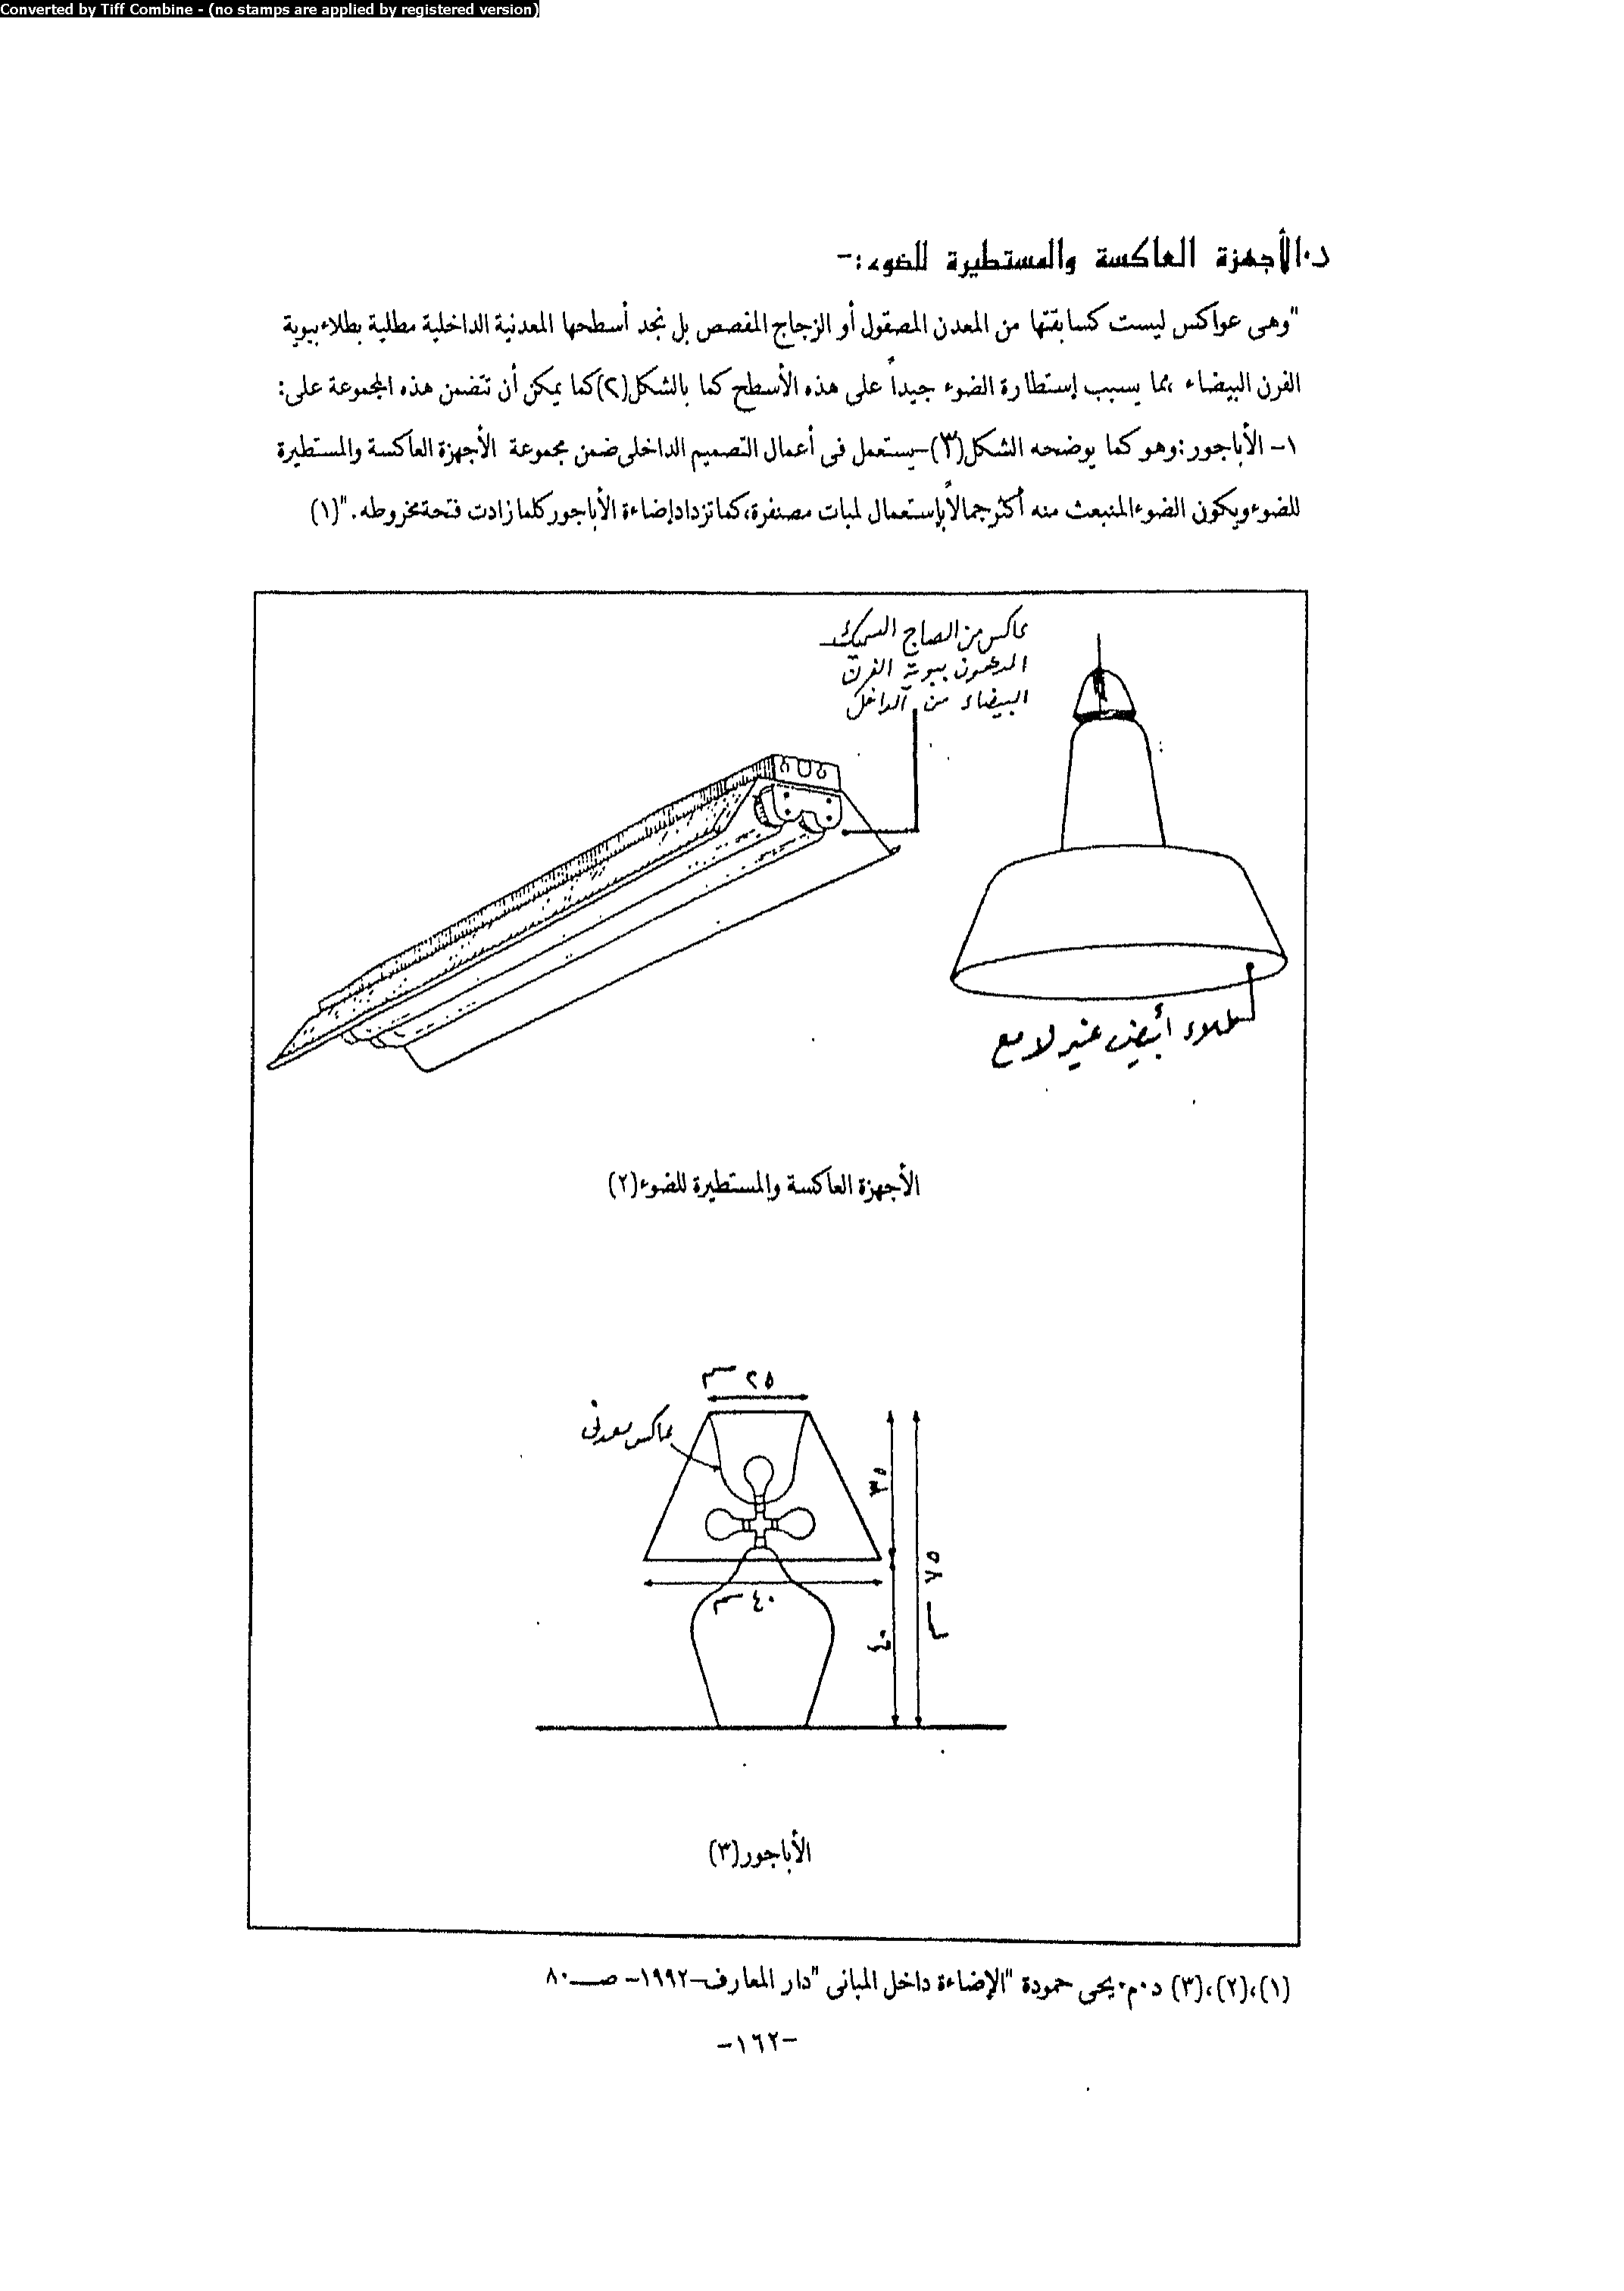 Converted by Tiff Combine - (no stamps are applied by registered version)
د.الأجهزة العاكسة والمستطيرة للضوء:-
"وهى عواكس ليست كسابقتها من المعدن المصقول أو الزجاج المفصص بل نجد أسطحها المعدنية الداخلية مطلية بطلاء بيوية
الفرن البيضاء ،مما يسبب إستطارة الضوء جيداً على هذه الأسطح كما بالشكل(٢)كما يمكن أن تتضمن هذه المجموعة على:
١- الأباجور:وهو كما يوضحه الشكل(٣)-يستعمل فى أعمال التصميم الداخلى ضمن مجموعة الأجهزة العاكسة والمستطيرة
للضوء ويكون الضوء المنبعث منه أكثر جمالاً بإستعمال لمبات مصنفرة،كما تزداد إضاءة الأباجور كلما زادت فتحة مخروطه."(١)
عاكس من الصاج السميك
المدهون ببوية الفرن
البيضاء من الداخل
طلاء أبيض غير لامع
الأجهزة العاكسة والمستطيرة للضوء(٢)
٢٥ سم
عاكس معدنى
٣٥
٧٥ سم
٤٠ سم
٤٠
الأباجور(٣)
(١)،(٢)،(٣) د.م.يحى حمودة "الإضاءة داخل المبانى "دار المعارف-١٩٩٢- صـ٨٠
-١٦٢-